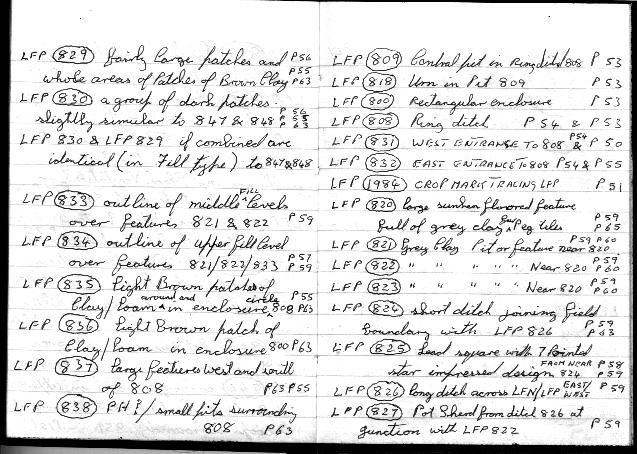 LFP 829 fairly large patches and P56
whose areas of Patches of Brown Clay P55 P63
LFP 830 a group of dark patches.
slightly simular to 847 & 848 P56 P55 P63
LFP 830 & LFP 829 if combined are
identical (in Fill type) to 847 & 848
LFP 833 outline of middle FILL levels
over features 821 & 822 P59
LFP 834 outline of upper fill level
over features 821/822/833 P57 P59
LFP 835 Light Brown patches of
Clay/loam around and in enclosure circle 808 P55 P63
LFP 836 Light Brown patch of
Clay/loam in enclosure 800 P63
LFP 837 Large features west and south
of 808 P63 P55
LFP 838 PH's/small pits surrounding
808 P63
LFP 809 Central pit in Ring ditch 808 P53
LFP 818 Urn in Pit 809 P53
LFP 800 Rectangular enclosure P53
LFP 808 Ring ditch P54 & P53
LFP 831 WEST ENTRANSE TO 808 P54 & P50
LFP 832 EAST ENTRANCE TO 808 P54 & P55
LFP 1984 CROP MARK TRACING LFP P51
LFP 820 large sunken flavored feature
full of grey clay Peg tiles P59 P65
LFP 821 Grey Clay Pit or feature near 820 P59 P60
LFP 822 " " " " " Near 820 P59 P60
LFP 823 " " " " " Near 820 P59 P60
LFP 824 short ditch joining field
boundary with LFP 826 P59 P63
LFP 825 Lead square with 7 Pointed
star impressed design FROM NEAR 824 P58 P59
LFP 826 long ditch across LFN/LFP EAST/WEST
LFP 827 Pot Sherd from ditch 826 at
junction with LFP 822 P59